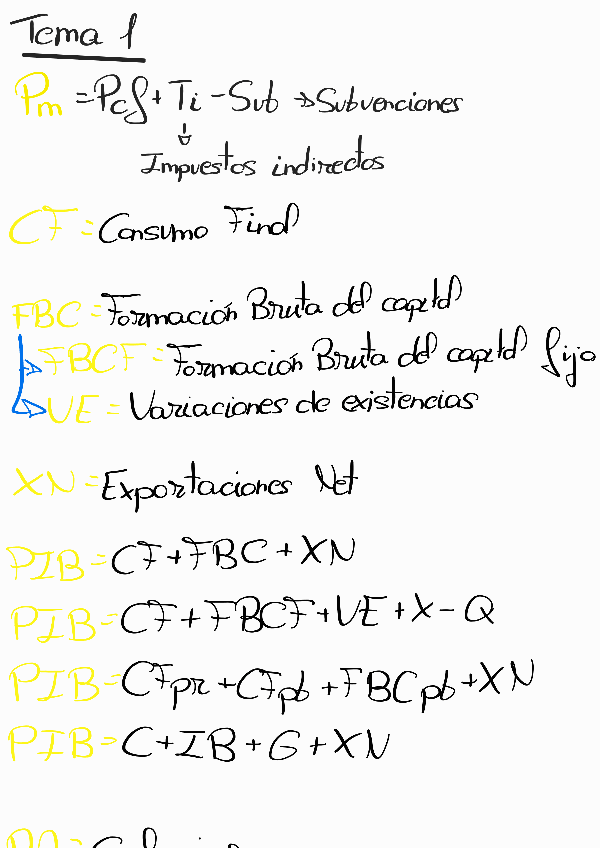 Tema 1
Pm = Pcf + Ti - Sub → Subvenciones
Impuestos indirectos
CF = Consumo Final
FBC = Formación Bruta del capital
FBCF = Formación Bruta del capital fijo
VE = Variaciones de existencias
XN = Exportaciones Net
PIB = CF + FBC + XN
PIB = CF + FBCF + VE + X - Q
PIB = CFpr + CFpb + FBCpb + XN
PIB = C + IB + G + XN